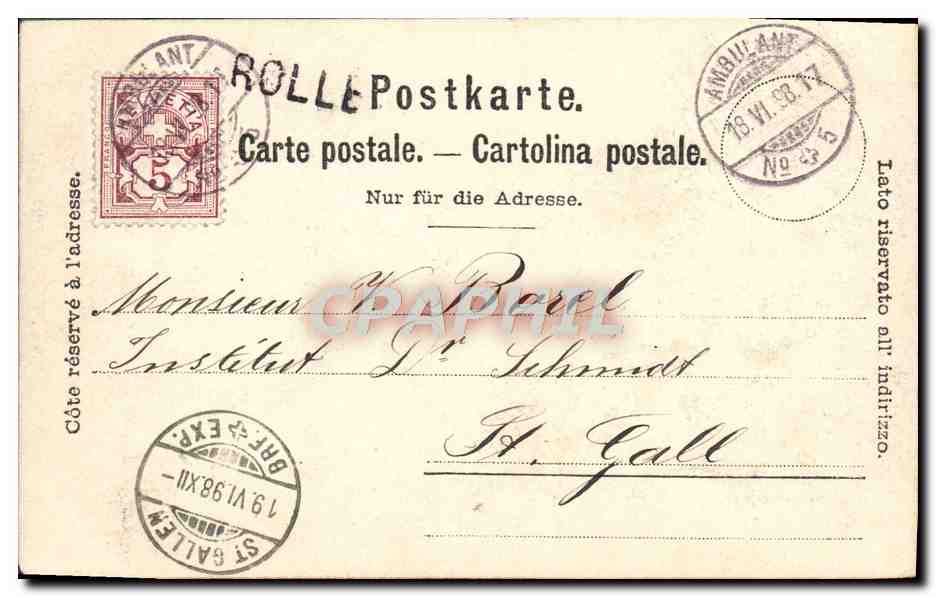 ROLLE
Postkarte.
Carte postale. — Cartolina postale.
Nur für die Adresse.
Côte réservé à l'adresse.
Lato riservato all' indirizzo.
HELVETIA
5
AMBULANT
18.VI.98.17
No 5
Monsieur V. Borel
Institut Dr Schmidt
St. Gall
CPAPHIL
BRF. EXP.
19.VI.98.XII-
ST GALLEN